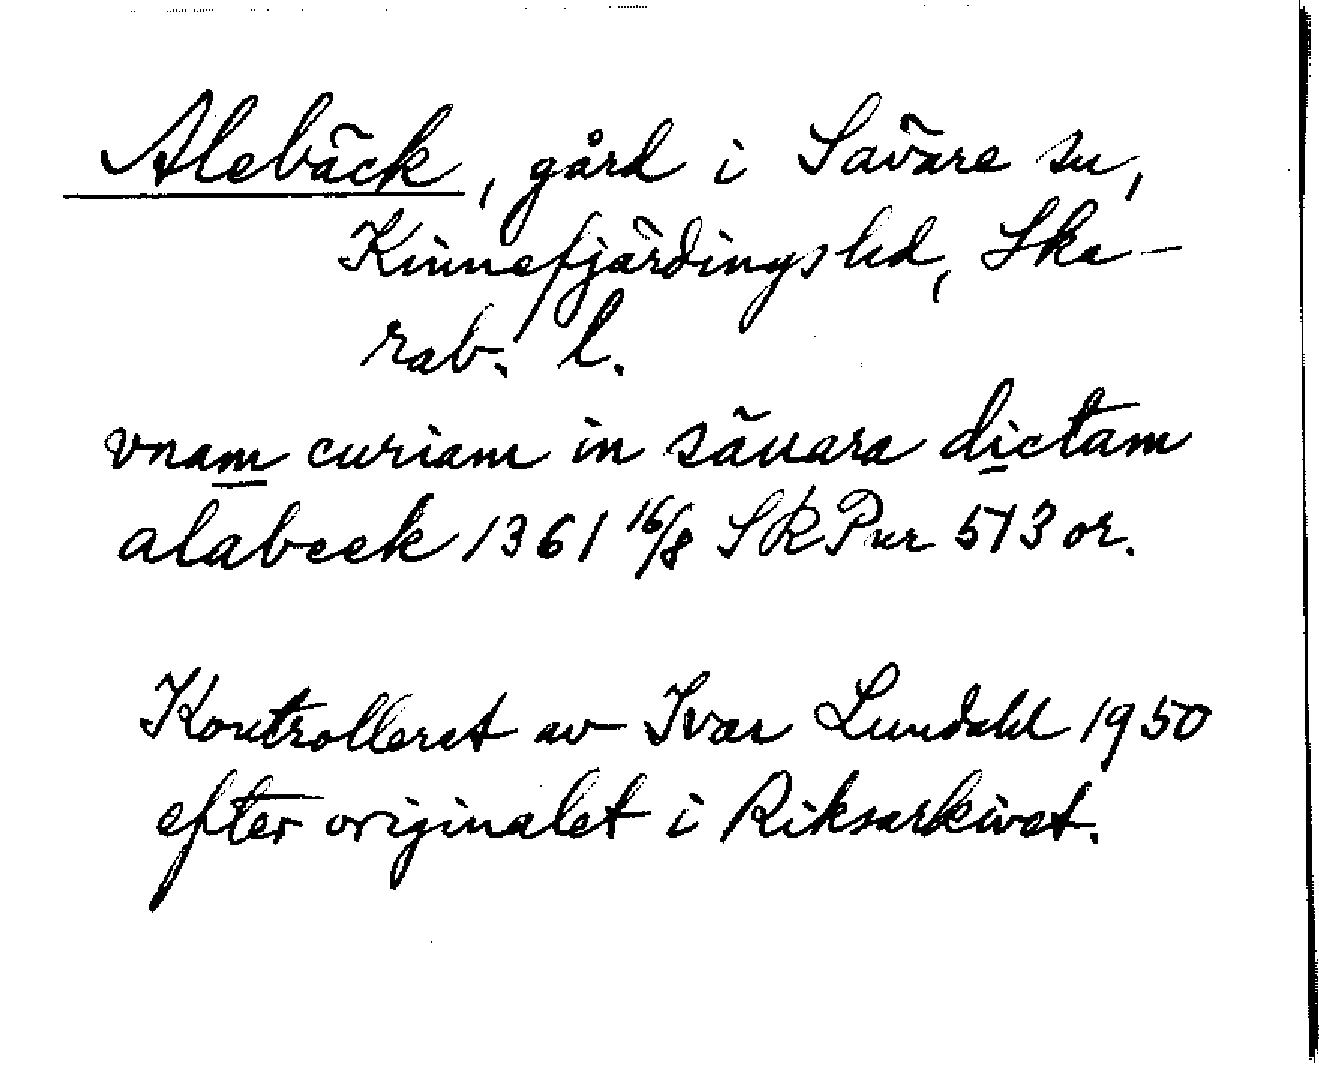 Alebäck, gård i Sävare sn,
Kinnefjärdings hd, Ska-
rab. l.
vnam curiam in säuara dictam
alabeck 1361 16/8 SRPnr 513 or.
Kontrollerat av Ivar Lundahl 1950
efter originalet i Riksarkivet.